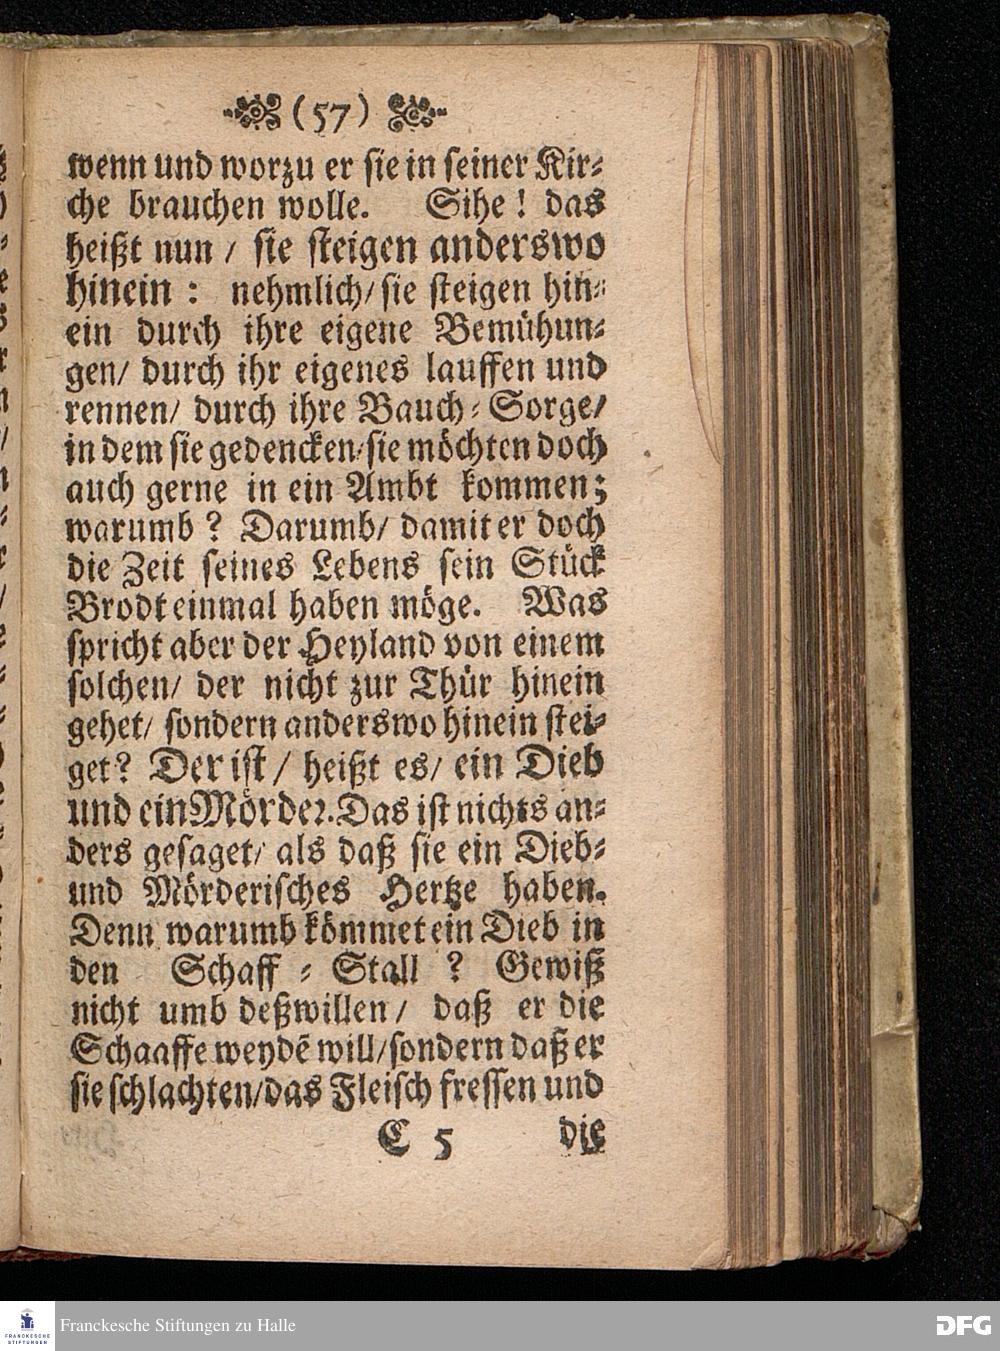 (57)
wenn und worzu er sie in seiner Kir-
che brauchen wolle. Sihe! das
heißt nun / sie steigen anderswo
hinein: nehmlich/ sie steigen hin-
ein durch ihre eigene Bemühun-
gen/ durch ihr eigenes lauffen und
rennen/ durch ihre Bauch-Sorge/
in dem sie gedencken/ sie möchten doch
auch gerne in ein Ambt kommen;
warumb? Darumb/ damit er doch
die Zeit seines Lebens sein Stück
Brodt einmal haben möge. Was
spricht aber der Heyland von einem
solchen/ der nicht zur Thür hinein
gehet/ sondern anderswo hinein stei-
get? Der ist / heißt es/ ein Dieb
und ein Mörder. Das ist nichts an-
ders gesaget/ als daß sie ein Dieb-
und Mörderisches Hertze haben.
Denn warumb kömmet ein Dieb in
den Schaff-Stall? Gewiß
nicht umb deßwillen / daß er die
Schaaffe weydē will/ sondern daß er
sie schlachten/ das Fleisch fressen und
C 5 die
FRANCKESCHE STIFTUNGEN
Franckesche Stiftungen zu Halle
DFG